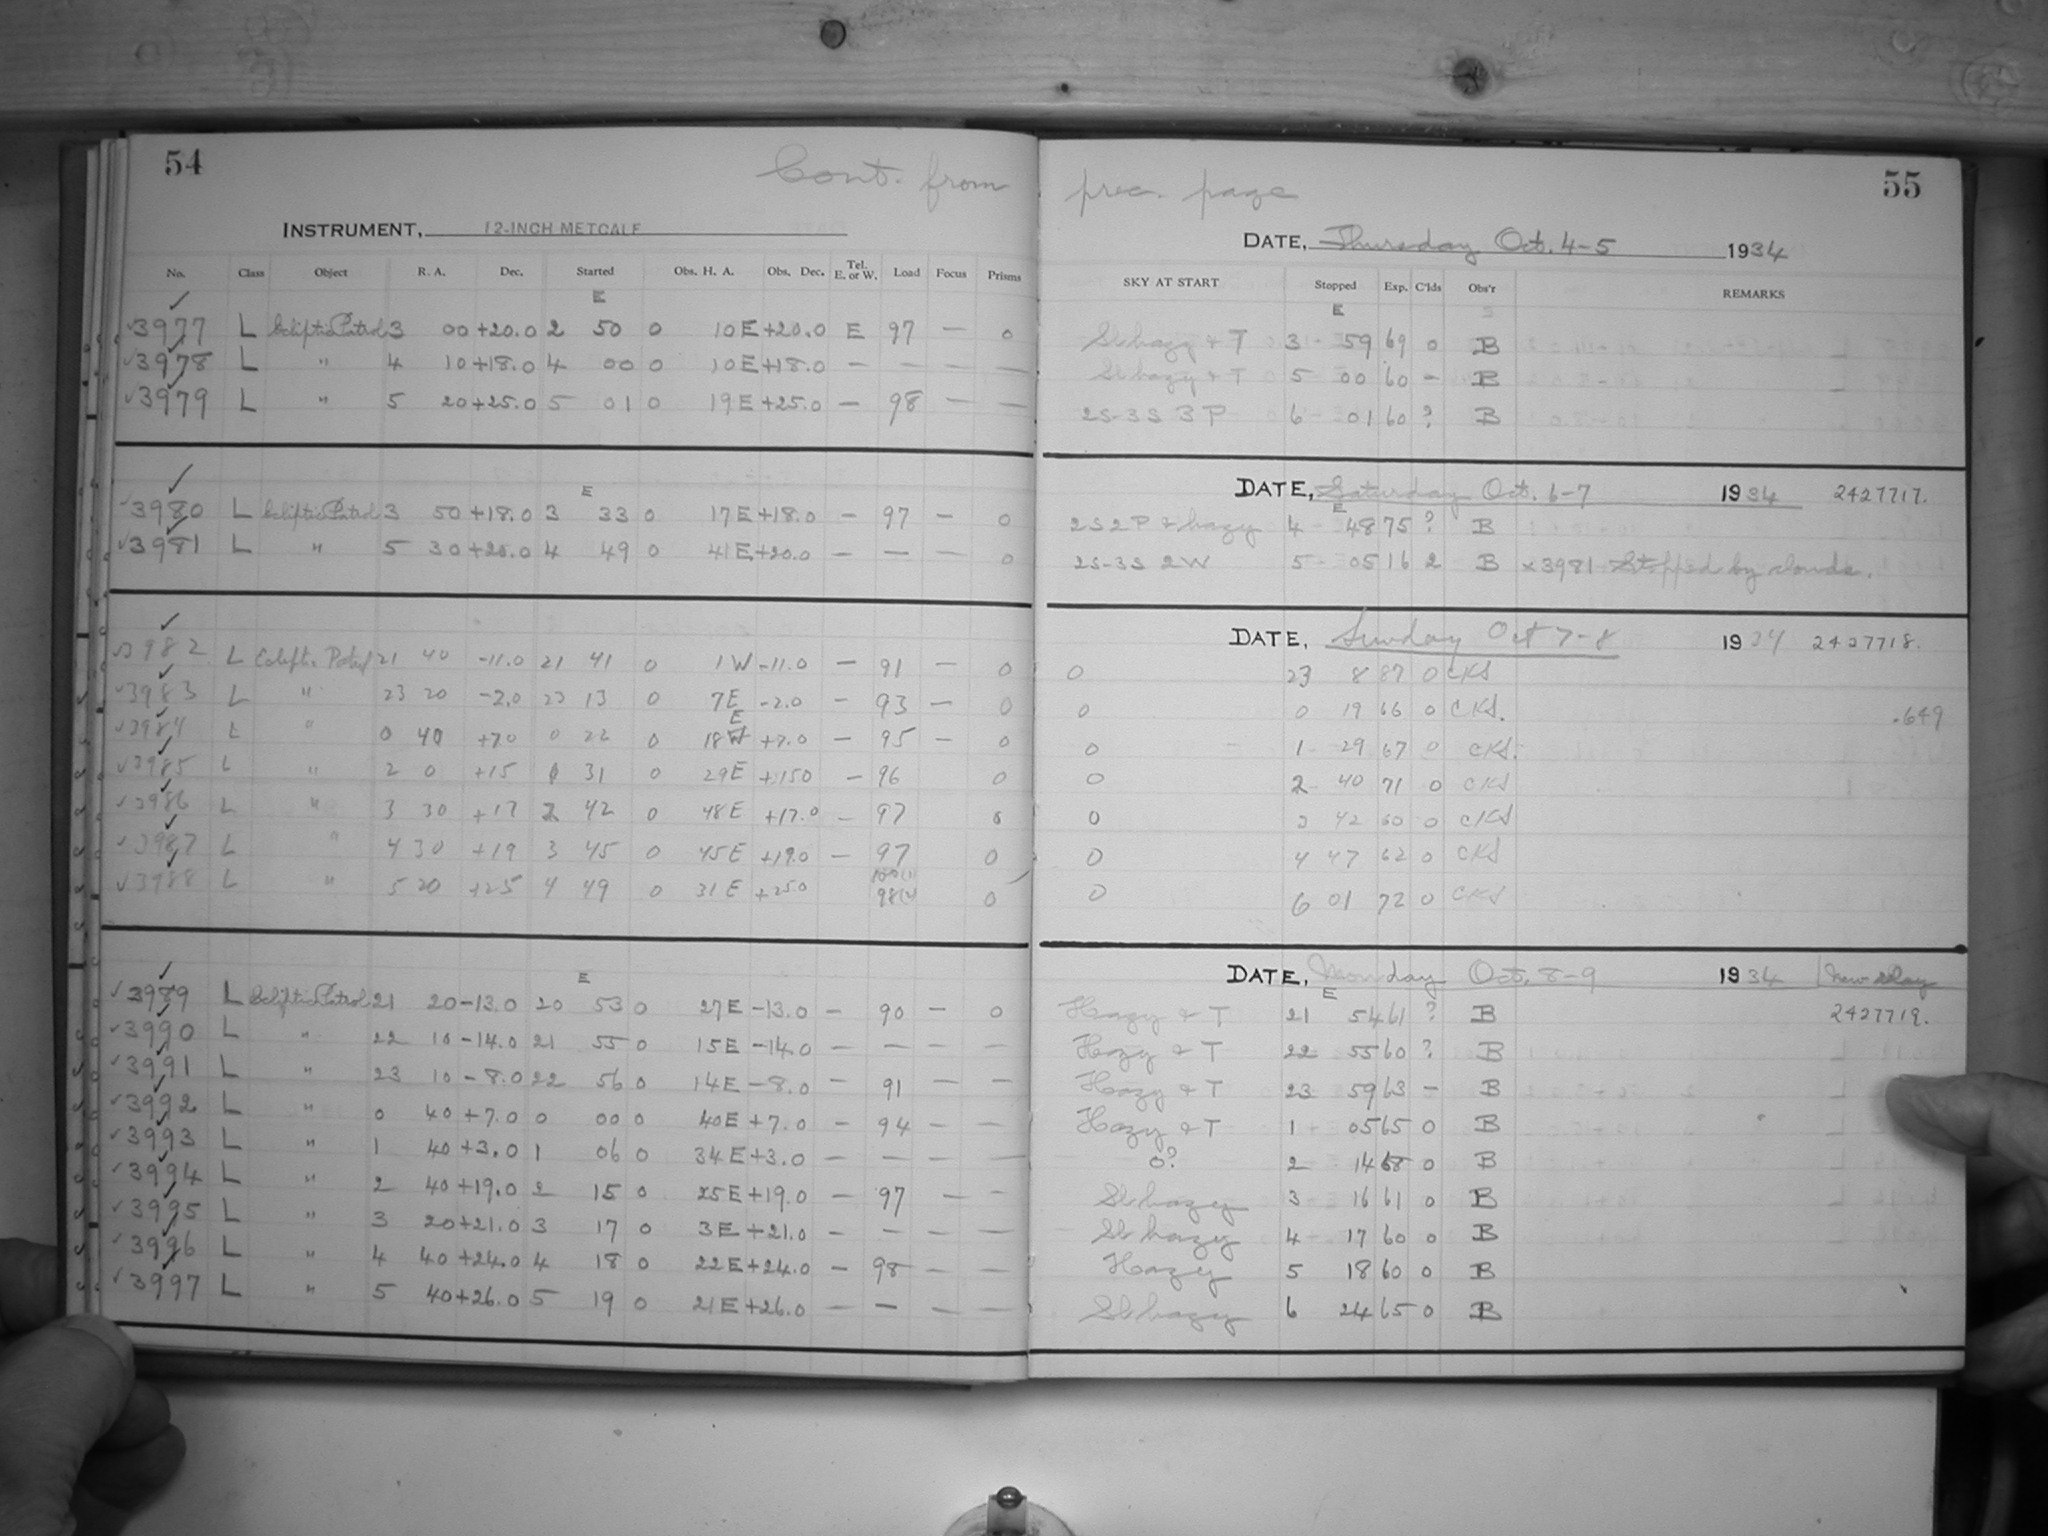 54
Cont. from prec. page
55
INSTRUMENT, 12-INCH METCALF
DATE, Thursday Oct. 4-5 1934
No. Class Object R. A. Dec. Started Obs. H. A. Obs. Dec. Tel. E. or W. Load Focus Prisms SKY AT START Stopped Exp. C'lds Obs'r REMARKS
E E
3977 L Ecliptic Patrol 3 00 +20.0 2 50 0 10E +20.0 E 97 — 0 Sl hazy & T 3 59 69 0 B
3978 L " 4 10 +18.0 4 00 0 10E +18.0 — — — — Sl hazy & T 5 00 60 — B
3979 L " 5 20 +25.0 5 01 0 19E +25.0 — 98 — — 2S-3S 3P 6 01 60 ? B
DATE, Saturday Oct. 6-7 1934 2427717.
E E
3980 L Ecliptic Patrol 3 50 +18.0 3 33 0 17E +18.0 — 97 — 0 2S 2P & hazy 4 48 75 ? B
3981 L " 5 30 +20.0 4 49 0 41E +20.0 — — — 0 2S-3S 2W 5 05 16 2 B x3981 Stopped by clouds.
DATE, Sunday Oct 7-8 1934 2427718.
3982 L Eclipti. Patrol 21 40 -11.0 21 41 0 1W -11.0 — 91 — 0 0 23 8 87 0 CKS
3983 L " 23 20 -2.0 23 13 0 7E -2.0 — 93 — 0 0 0 19 66 0 CKS. .649
3984 L " 0 40 +7.0 0 22 0 18 E +7.0 — 95 — 0 0 1 29 67 0 CKS.
3985 L " 2 0 +15 1 31 0 29E +15.0 — 96 0 0 2 40 71 0 CKS
3986 L " 3 30 +17 2 42 0 48E +17.0 — 97 0 0 3 42 60 0 CKS
3987 L " 4 30 +19 3 45 0 45E +19.0 — 97 0 0 4 47 62 0 CKS
3988 L " 5 20 +25 4 49 0 31E +25.0 98 0 0 6 01 72 0 CKS
DATE, Monday Oct. 8-9 1934 New Day
E E
3989 L Ecliptic Patrol 21 20 -13.0 20 53 0 27E -13.0 — 90 — 0 Hazy & T 21 54 61 ? B 2427719.
3990 L " 22 10 -14.0 21 55 0 15E -14.0 — — — — Hazy & T 22 55 60 ? B
3991 L " 23 10 -8.0 22 56 0 14E -8.0 — 91 — — Hazy & T 23 59 63 — B
3992 L " 0 40 +7.0 0 00 0 40E +7.0 — 94 — — Hazy & T 1 05 65 0 B
3993 L " 1 40 +3.0 1 06 0 34E +3.0 — — — — 0? 2 14 68 0 B
3994 L " 2 40 +19.0 2 15 0 25E +19.0 — 97 — — Sl hazy 3 16 61 0 B
3995 L " 3 20 +21.0 3 17 0 3E +21.0 — — — — Sl hazy 4 17 60 0 B
3996 L " 4 40 +24.0 4 18 0 22E +24.0 — 98 — — Hazy 5 18 60 0 B
3997 L " 5 40 +26.0 5 19 0 21E +26.0 — — — — Sl hazy 6 24 65 0 B